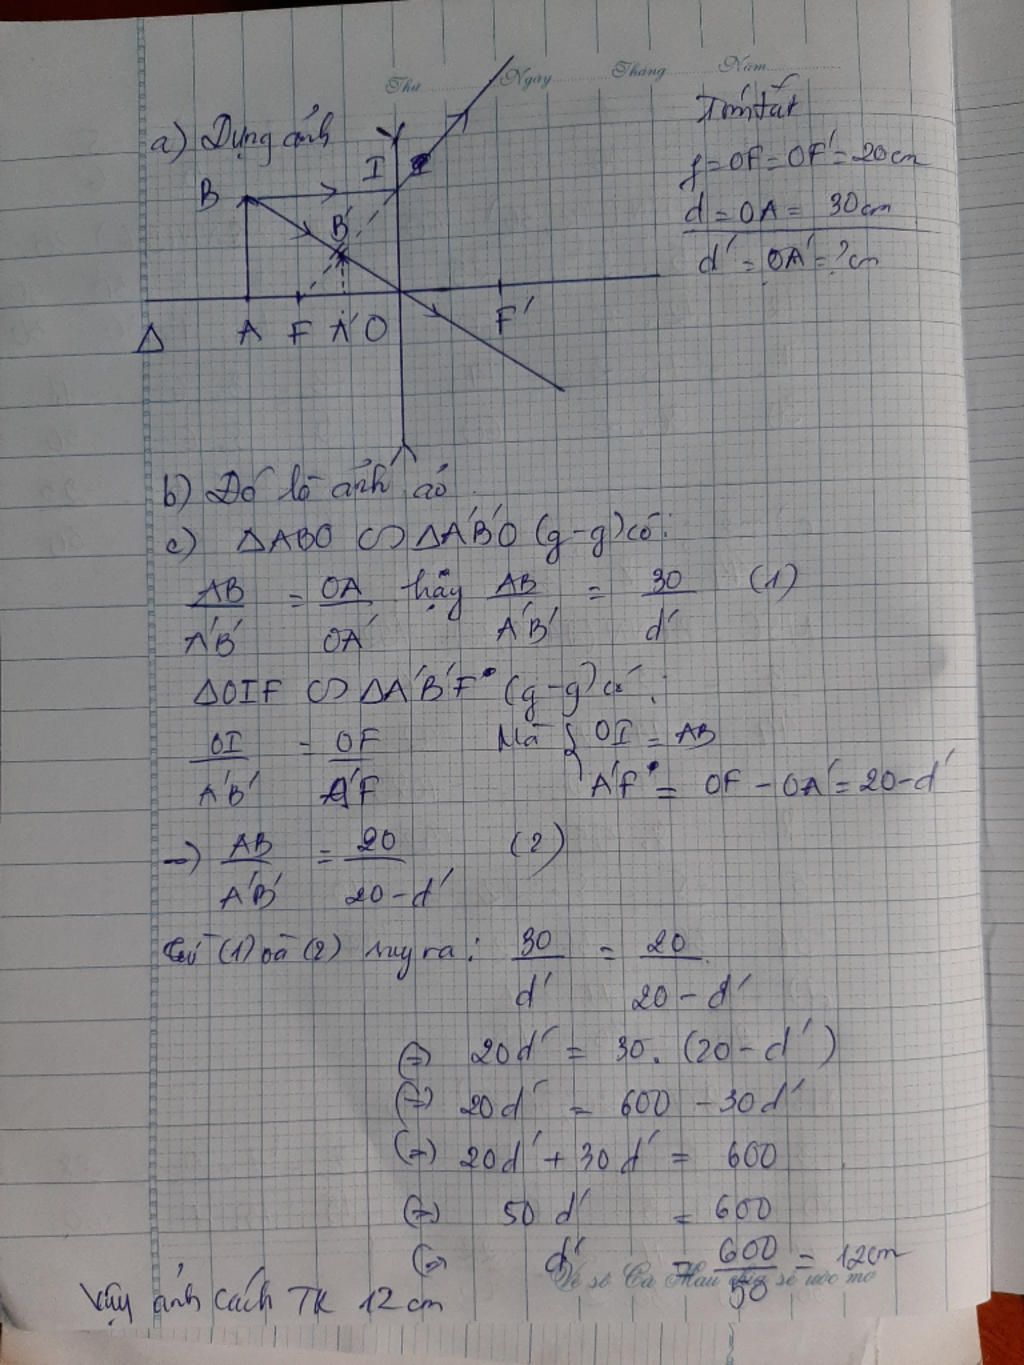 Thứ Ngày Tháng Năm
a) Dựng ảnh
Tóm tắt
f = OF = OF' = 20cm
d = OA = 30cm
d' = OA' = ? cm
I
B
B'
Δ A F A' O F'
b) Đó là ảnh ảo.
c) ΔABO ∽ ΔA'B'O (g-g) có:
AB/A'B' = OA/OA' hay AB/A'B' = 30/d' (1)
ΔOIF ∽ ΔA'B'F (g-g) có:
OI/A'B' = OF/A'F Mà { OI = AB
A'F = OF - OA' = 20 - d'
→) AB/A'B' = 20/20-d' (2)
Từ (1) và (2) suy ra: 30/d' = 20/20-d'
(=) 20d' = 30. (20 - d')
(=) 20d' = 600 - 30d'
(=) 20d' + 30d' = 600
(=) 50 d' = 600
(=) d' = 600/50 = 12cm
Vậy ảnh cách TK 12cm